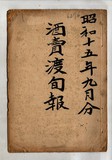 昭和十五年九月分
酒賣渡旬報